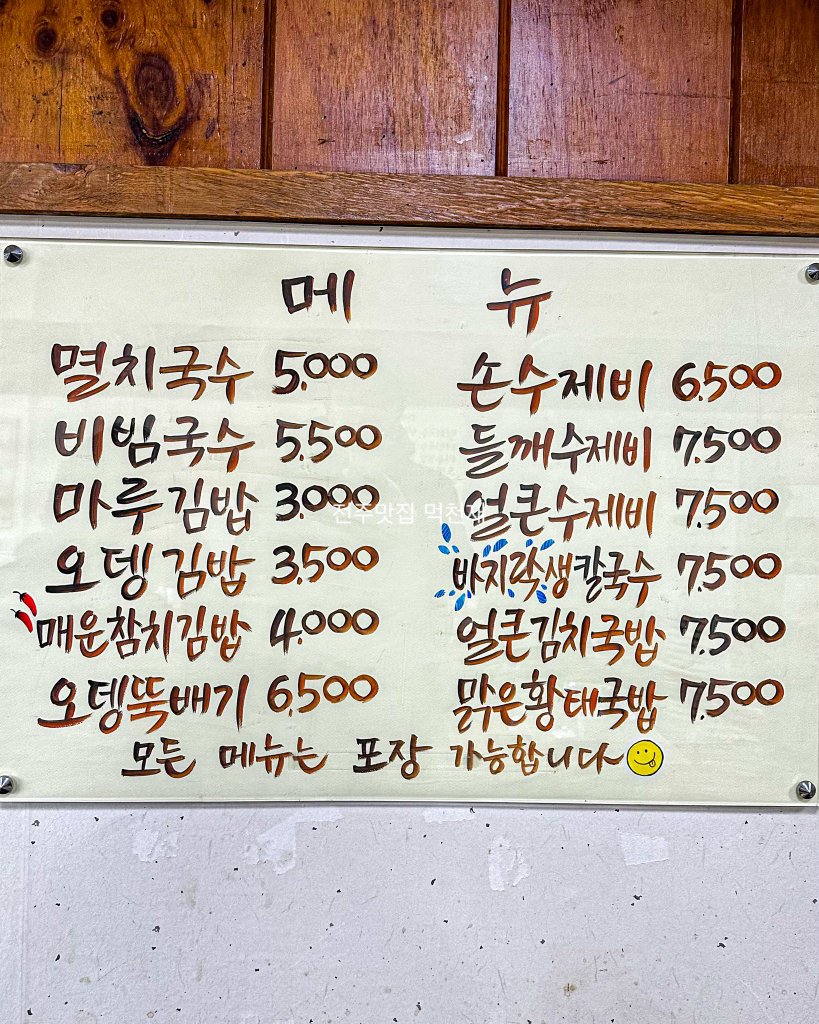 메 뉴
멸치국수 5,000
비빔국수 5,500
마루김밥 3,000
오뎅김밥 3,500
매운참치김밥 4,000
오뎅뚝배기 6,500
손수제비 6,500
들깨수제비 7,500
얼큰수제비 7,500
바지락생칼국수 7,500
얼큰김치국밥 7,500
맑은황태국밥 7,500
모든 메뉴는 포장 가능합니다~
전주맛집 먹천재